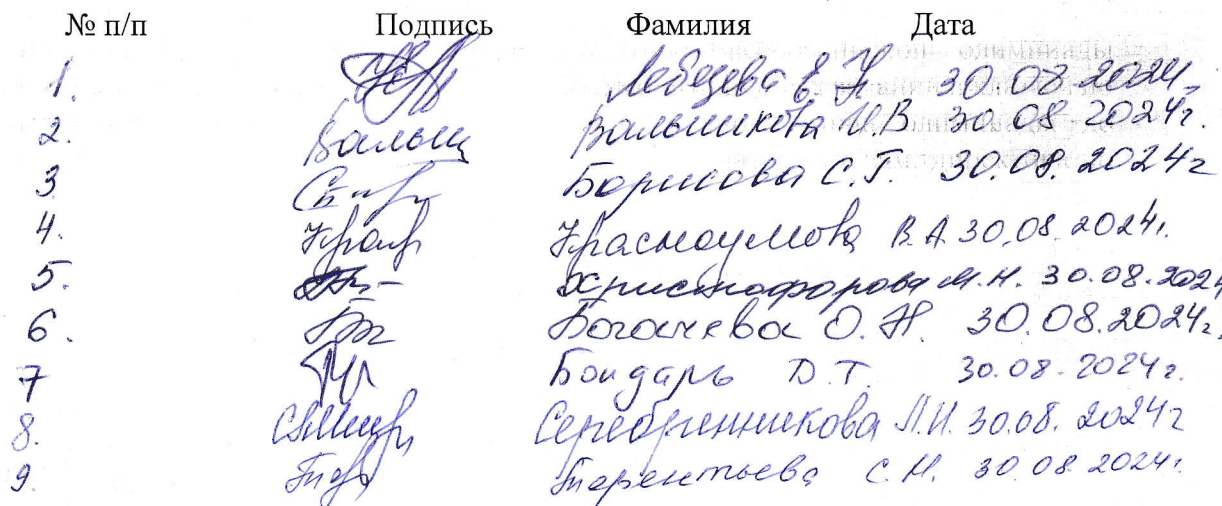 № п/п Подпись Фамилия Дата
1. Лебедева Е.Н 30.08.2024
2. Вальщ Вальщикова И.В 30.08 2024г.
3 Борисова С.Г. 30.08.2024г
4. Красноумова В.А 30.08.2024г.
5. Христофорова М.Н. 30.08.2024
6. Богачева О.Н. 30.08.2024г.
7 Бондарь Д.Т. 30.08.2024г.
8. Серебренникова Л.И. 30.08.2024г
9. Терентьева С.Н. 30.08.2024г.